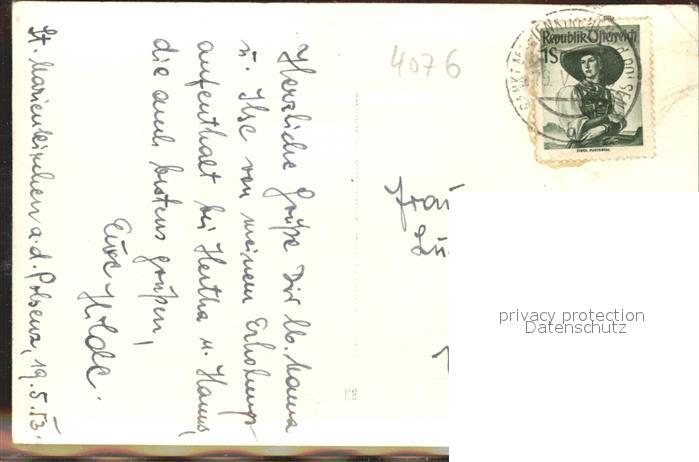 St. Marienkirchen a. d. Polsenz, 19.5.53.
Herzliche Grüße Dir lb. Mama
u. Ilse von meinem Erholungs-
aufenthalt bei Hertha u. Hanns,
die auch bestens grüßen,
Eure Hilde.
4076
Republik Österreich
1S
TIROL PUSTERTAL
Frau
privacy protection
Datenschutz